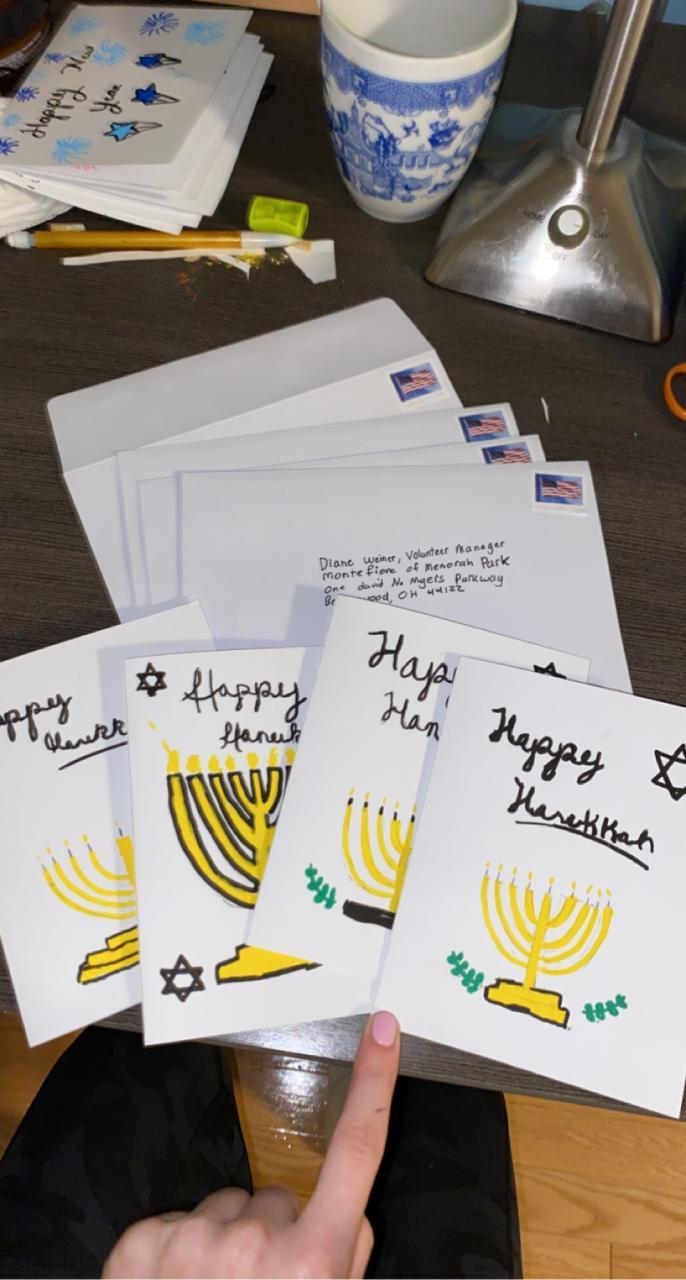 Happy New
Year
HOME
DAY
OFF
Diane Weiner, Volunteer Manager
Montefiore of Menorah Park
One david No Myers Parkway
Be wood, OH 44122
appy
Hanukk
Happy
Hanuk
Hap
Han
Happy
Hanukkah